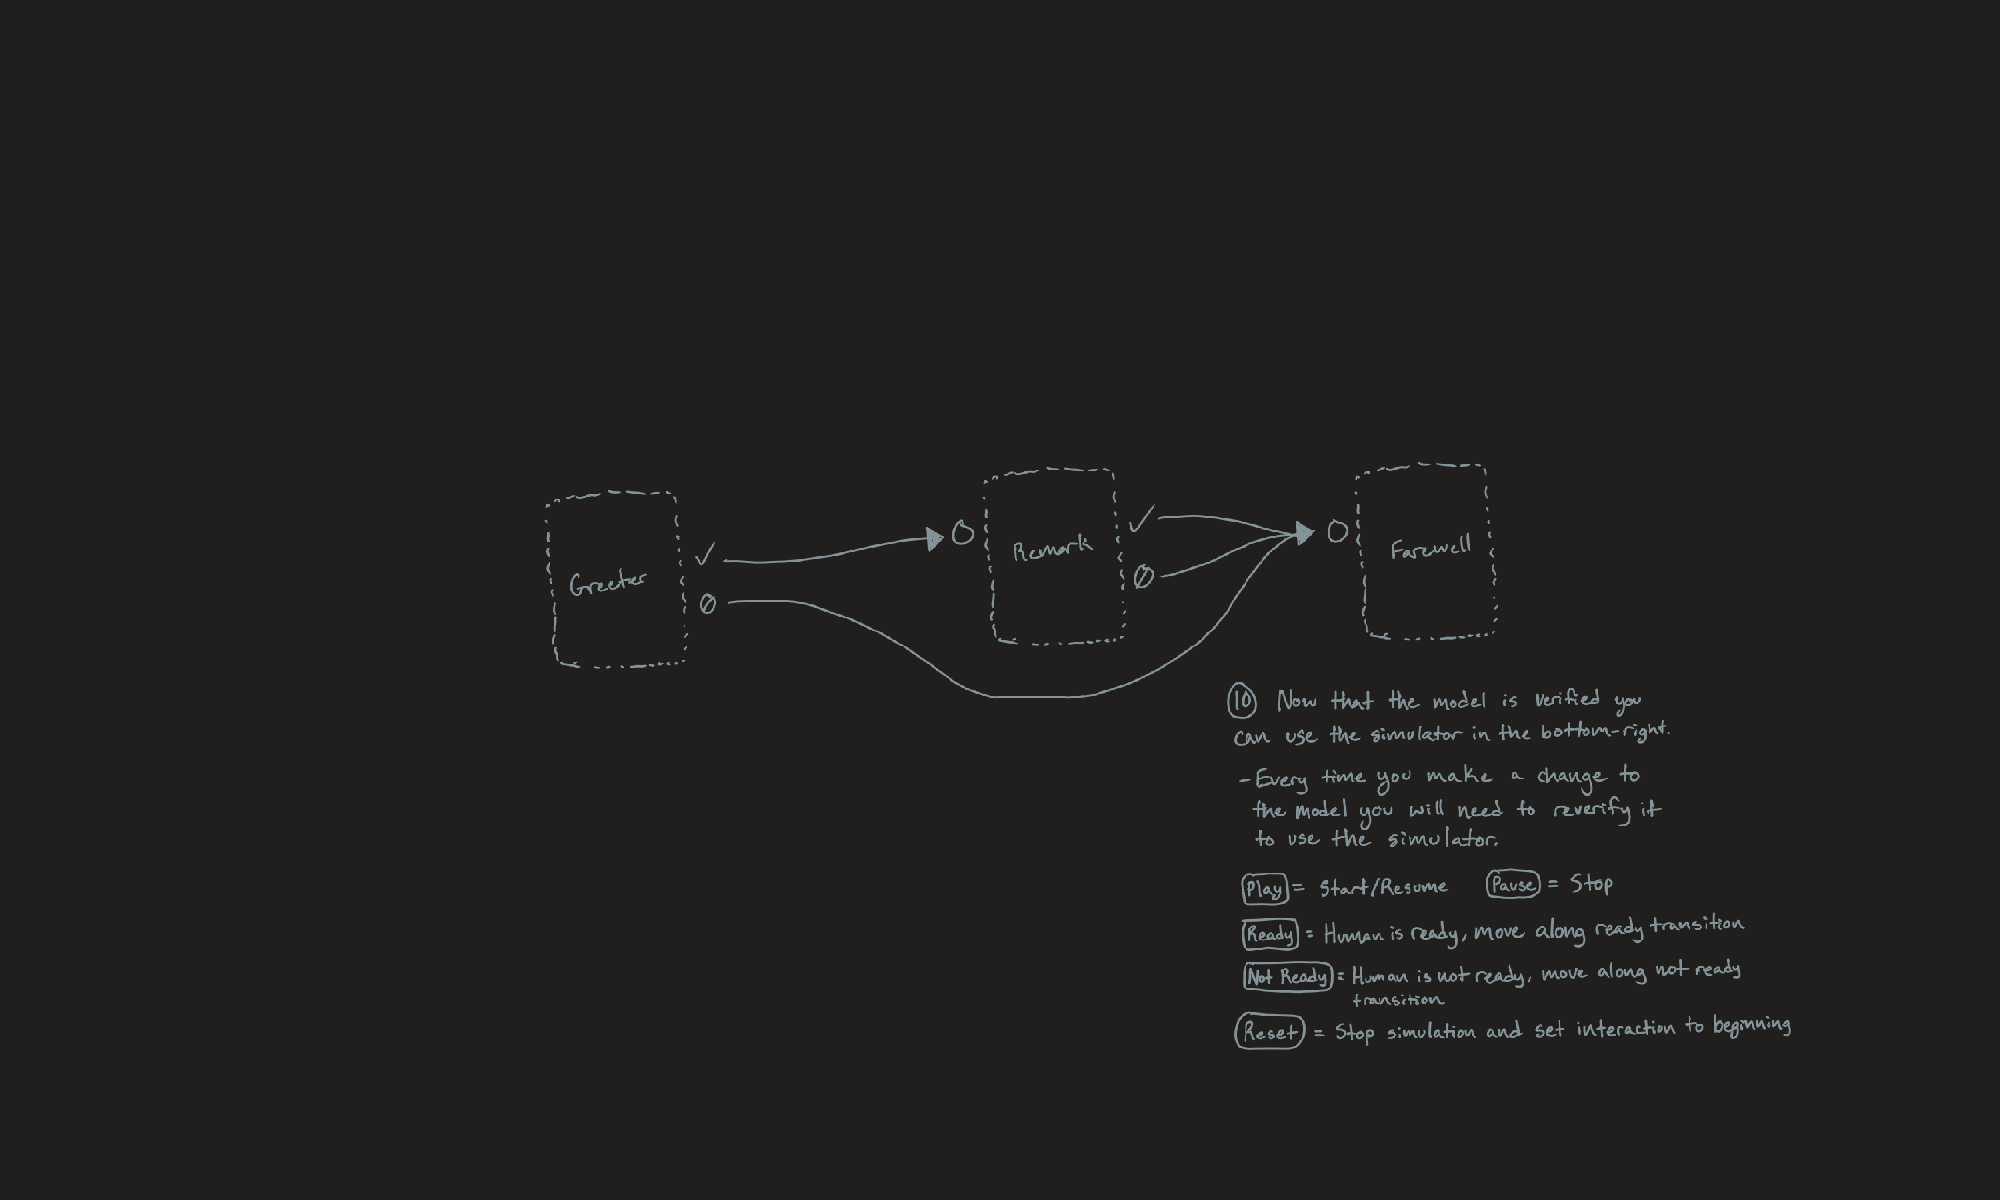 Greeter
Remark
Farewell
10 Now that the model is verified you
can use the simulator in the bottom-right.
- Every time you make a change to
the model you will need to reverify it
to use the simulator.
Play = Start/Resume Pause = Stop
Ready = Human is ready, move along ready transition
Not Ready = Human is not ready, move along not ready
transition
Reset = Stop simulation and set interaction to beginning